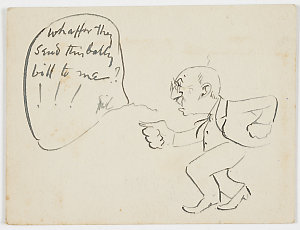 whaffor they
send this bally
bill to me?
! ! !